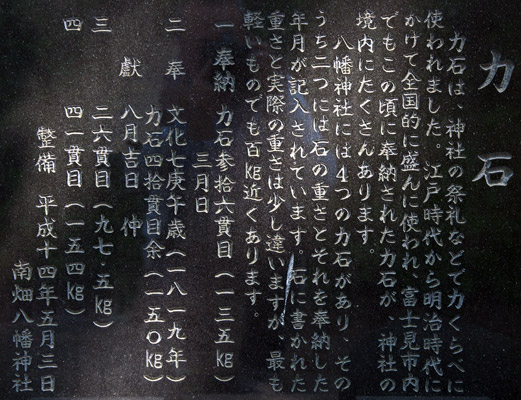 力石
力石は、神社の祭礼などで力くらべに
使われました。江戸時代から明治時代に
かけて全国的に盛んに使われ、富士見市内
でもこの頃に奉納された力石が、神社の
境内にたくさんあります。
八幡神社には4つの力石があり、その
うち二つには石の重さとそれを奉納した
年月が記入されています。石に書かれた
重さと実際の重さは少し違いますが、最も
軽いものでも百㎏近くあります。
一 奉納 力石参拾六貫目(一三五㎏)
三月日
二 奉 文化七庚午歳(一八一九年)
力石四拾貫目余(一五〇㎏)
献 八月吉日 仲
三 二六貫目(九七.五㎏)
四 四一貫目(一五四㎏)
整備 平成十四年五月三日
南畑八幡神社